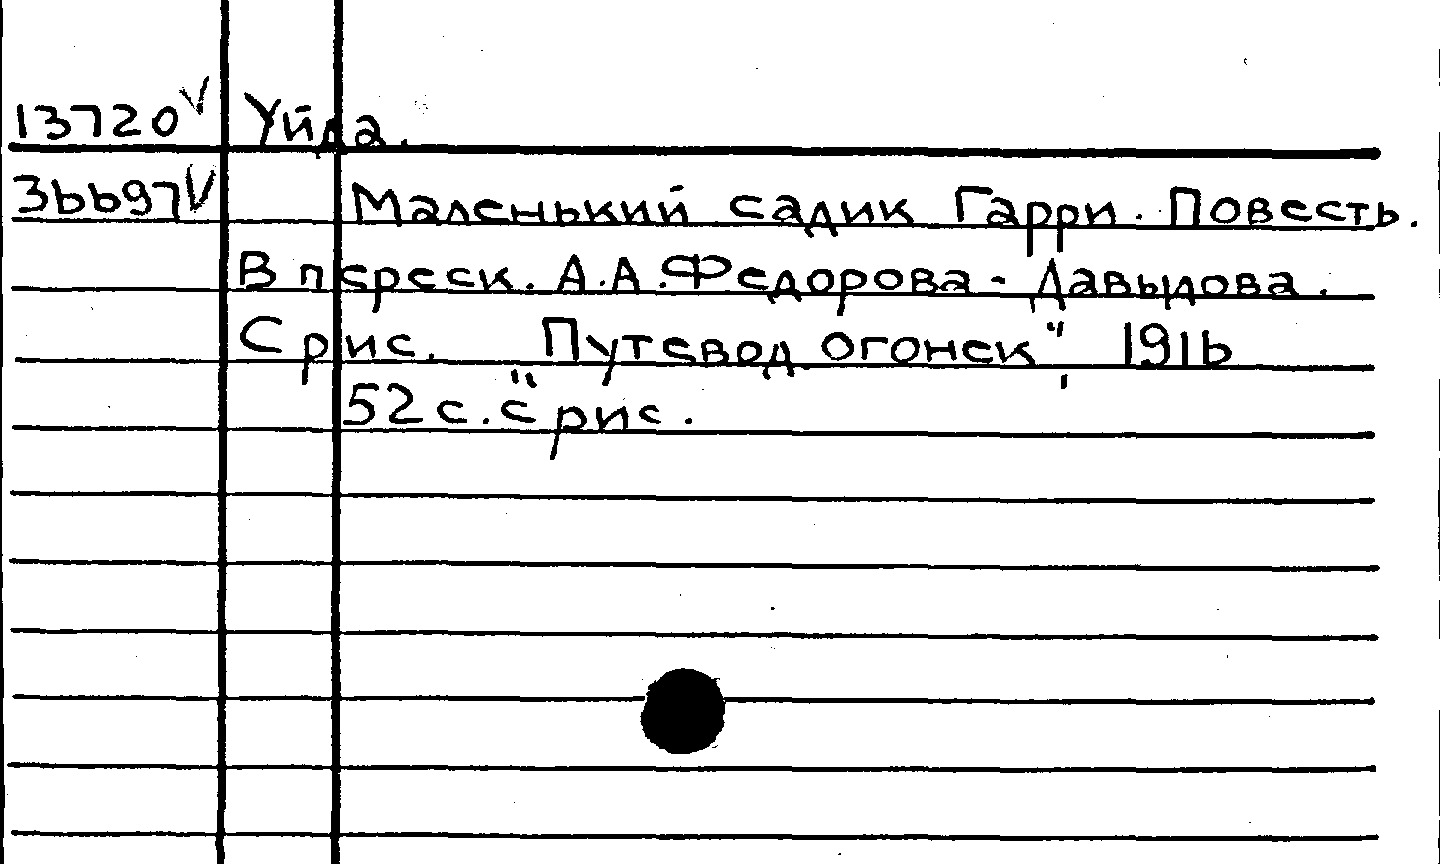 13720 V Уйда.
36697 V Маленький садик Гарри. Повесть.
В переск. А.А.Федорова-Давыдова.
С рис. „Путевод. огонек", 1916
52 с. с рис.